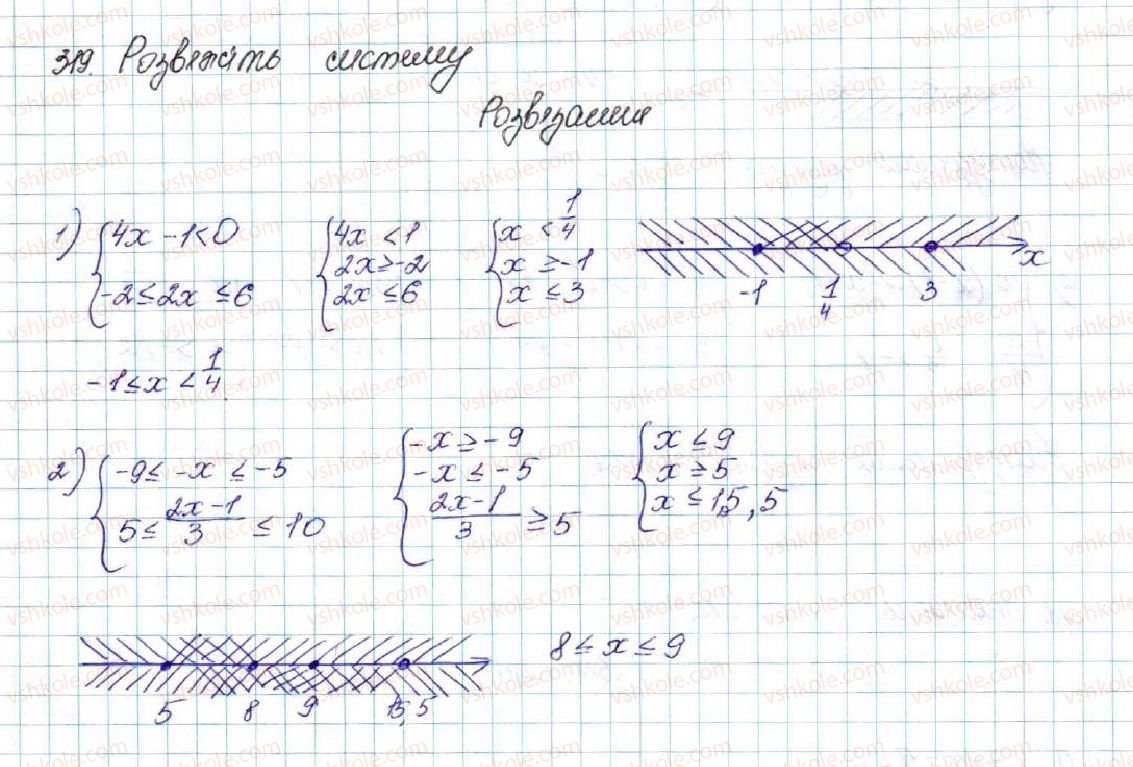 319. Розвяжіть систему
Розвязання
1) { 4x - 1 < 0
-2 ≤ 2x ≤ 6
{ 4x < 1
2x ≥ -2
2x ≤ 6
{ x < 1/4
x ≥ -1
x ≤ 3
-1 1/4 3 x
-1 ≤ x < 1/4
2) { -9 ≤ -x ≤ -5
5 ≤ (2x-1)/3 ≤ 10
{ -x ≥ -9
-x ≤ -5
(2x-1)/3 ≥ 5
{ x ≤ 9
x ≥ 5
x ≤ 15,5
5 8 9 15,5
8 ≤ x ≤ 9